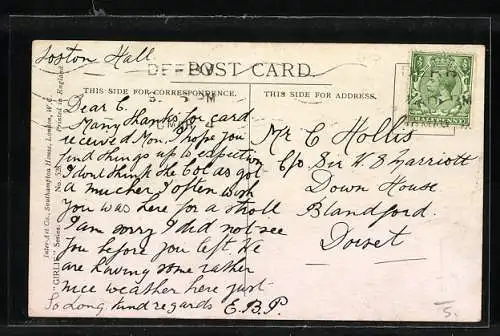 Foston Hall
DERBY
POST CARD.
THIS SIDE FOR CORRESPONDENCE.
THIS SIDE FOR ADDRESS.
Dear C.
Many thanks for card
received Mon. I hope you
find things up to expection
I dont think the Col as got
a mucher I often wish
you was here for a stroll
I am sorry I did not see
you before you left. We
are having some rather
nice weather here just
So Long, kind regards E.B.P.
Mr C Hollis
C/o Sir W S Marriott
Down House
Blandford.
Dorset
HALFPENNY
Inter-Art Co., Southampton House, London, W.C.
"GIRLIE" Series. No. 528 Printed in England
5.